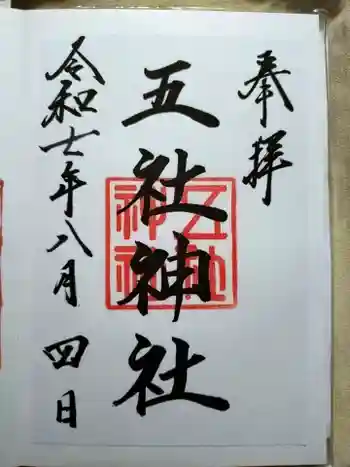 奉拝
五社神社
五社神社
令和七年八月四日